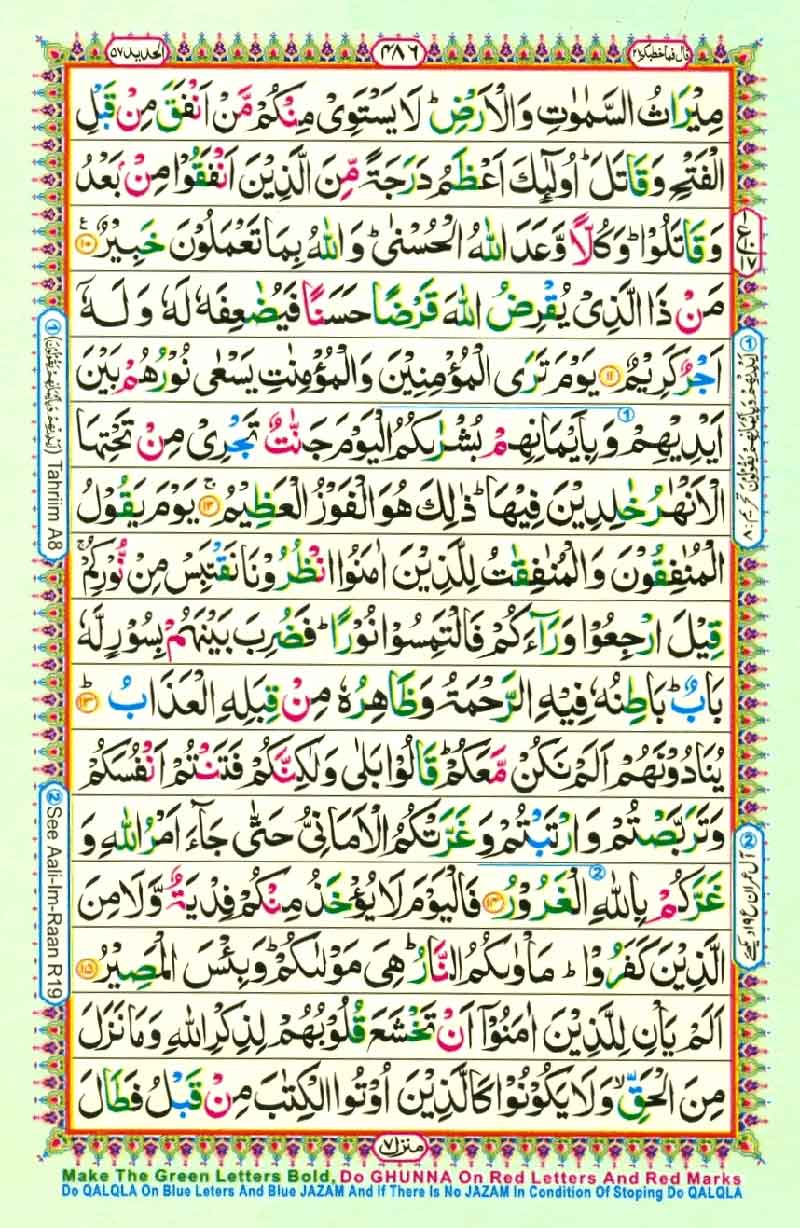 قال فما خطبكم ٢٧
٤٨٦
الحديد ٥٧
مِيْرَاثُ السَّمٰوٰتِ وَالْاَرْضِ ؕ لَا يَسْتَوِىْ مِنْكُمْ مَّنْ اَنْفَقَ مِنْ قَبْلِ
الْفَتْحِ وَقَاتَلَ ؕ اُولٰٓئِكَ اَعْظَمُ دَرَجَةً مِّنَ الَّذِيْنَ اَنْفَقُوْا مِنْۢ بَعْدُ
وَقَاتَلُوْا ؕ وَكُلًّا وَّعَدَ اللّٰهُ الْحُسْنٰى ؕ وَاللّٰهُ بِمَا تَعْمَلُوْنَ خَبِيْرٌ ﴿۱۰﴾
مَنْ ذَا الَّذِىْ يُقْرِضُ اللّٰهَ قَرْضًا حَسَنًا فَيُضٰعِفَهٗ لَهٗ وَ لَهٗۤ
اَجْرٌ كَرِيْمٌ ﴿۱۱﴾ يَوْمَ تَرَى الْمُؤْمِنِيْنَ وَالْمُؤْمِنٰتِ يَسْعٰى نُوْرُهُمْ بَيْنَ
اَيْدِيْهِمْ وَبِاَيْمَانِهِمْ بُشْرٰىكُمُ الْيَوْمَ جَنّٰتٌ تَجْرِىْ مِنْ تَحْتِهَا
الْاَنْهٰرُ خٰلِدِيْنَ فِيْهَا ؕ ذٰلِكَ هُوَ الْفَوْزُ الْعَظِيْمُ ﴿۱۲﴾ يَوْمَ يَقُوْلُ
الْمُنٰفِقُوْنَ وَالْمُنٰفِقٰتُ لِلَّذِيْنَ اٰمَنُوا انْظُرُوْنَا نَقْتَبِسْ مِنْ نُّوْرِكُمْ ۚ
قِيْلَ ارْجِعُوْا وَرَآءَكُمْ فَالْتَمِسُوْا نُوْرًا ؕ فَضُرِبَ بَيْنَهُمْ بِسُوْرٍ لَّهٗ
بَابٌ ؕ بَاطِنُهٗ فِيْهِ الرَّحْمَةُ وَظَاهِرُهٗ مِنْ قِبَلِهِ الْعَذَابُ ؕ ﴿۱۳﴾
يُنَادُوْنَهُمْ اَلَمْ نَكُنْ مَّعَكُمْ ؕ قَالُوْا بَلٰى وَلٰكِنَّكُمْ فَتَنْتُمْ اَنْفُسَكُمْ
وَتَرَبَّصْتُمْ وَارْتَبْتُمْ وَغَرَّتْكُمُ الْاَمَانِىُّ حَتّٰى جَآءَ اَمْرُ اللّٰهِ وَ
غَرَّكُمْ بِاللّٰهِ الْغَرُوْرُ ﴿۱۴﴾ فَالْيَوْمَ لَا يُؤْخَذُ مِنْكُمْ فِدْيَةٌ وَّلَا مِنَ
الَّذِيْنَ كَفَرُوْا ؕ مَاْوٰىكُمُ النَّارُ ؕ هِىَ مَوْلٰىكُمْ ؕ وَبِئْسَ الْمَصِيْرُ ﴿۱۵﴾
اَلَمْ يَاْنِ لِلَّذِيْنَ اٰمَنُوْۤا اَنْ تَخْشَعَ قُلُوْبُهُمْ لِذِكْرِ اللّٰهِ وَمَا نَزَلَ
مِنَ الْحَقِّ ۙ وَلَا يَكُوْنُوْا كَالَّذِيْنَ اُوْتُوا الْكِتٰبَ مِنْ قَبْلُ فَطَالَ
منزل ۷
① (اَيْدِيْهِمْ وَبِاَيْمَانِهِمْ يَقُوْلُوْنَ) Tahriim A8
② See Aali-Im-Raan R19
① (اَيْدِيْهِمْ وَبِاَيْمَانِهِمْ يَقُوْلُوْنَ) تحریم: ۸
② آل عمران ع ۱۹ دیکھئے
Make The Green Letters Bold, Do GHUNNA On Red Letters And Red Marks
Do QALQLA On Blue Leters And Blue JAZAM And If There Is No JAZAM In Condition Of Stoping Do QALQLA